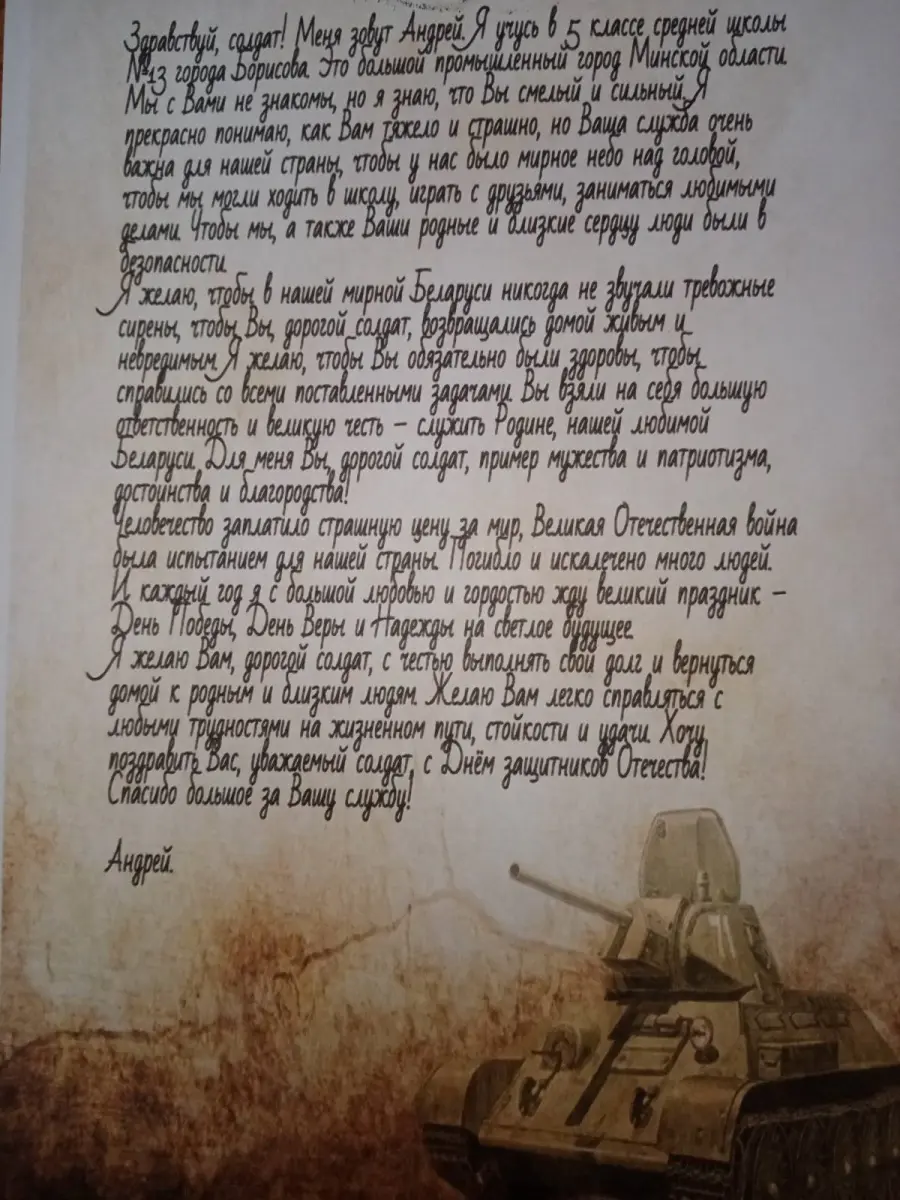 Здравствуй, солдат! Меня зовут Андрей. Я учусь в 5 классе средней школы
№13 города Борисова. Это большой промышленный город Минской области.
Мы с Вами не знакомы, но я знаю, что Вы смелый и сильный. Я
прекрасно понимаю, как Вам тяжело и страшно, но Ваша служба очень
важна для нашей страны, чтобы у нас было мирное небо над головой,
чтобы мы могли ходить в школу, играть с друзьями, заниматься любимыми
делами. Чтобы мы, а также Ваши родные и близкие сердцу люди были в
безопасности.
Я желаю, чтобы в нашей мирной Беларуси никогда не звучали тревожные
сирены, чтобы Вы, дорогой солдат, возвращались домой живым и
невредимым. Я желаю, чтобы Вы обязательно были здоровы, чтобы
справились со всеми поставленными задачами. Вы взяли на себя большую
ответственность и великую честь – служить Родине, нашей любимой
Беларуси. Для меня Вы, дорогой солдат, пример мужества и патриотизма,
достоинства и благородства!
Человечество заплатило страшную цену за мир, Великая Отечественная война
была испытанием для нашей страны. Погибло и искалечено много людей.
И каждый год я с большой любовью и гордостью жду великий праздник –
День Победы, День Веры и Надежды на светлое будущее.
Я желаю Вам, дорогой солдат, с честью выполнять свой долг и вернуться
домой к родным и близким людям. Желаю Вам легко справляться с
любыми трудностями на жизненном пути, стойкости и удачи. Хочу
поздравить Вас, уважаемый солдат, с Днём защитников Отечества!
Спасибо большое за Вашу службу!
Андрей.